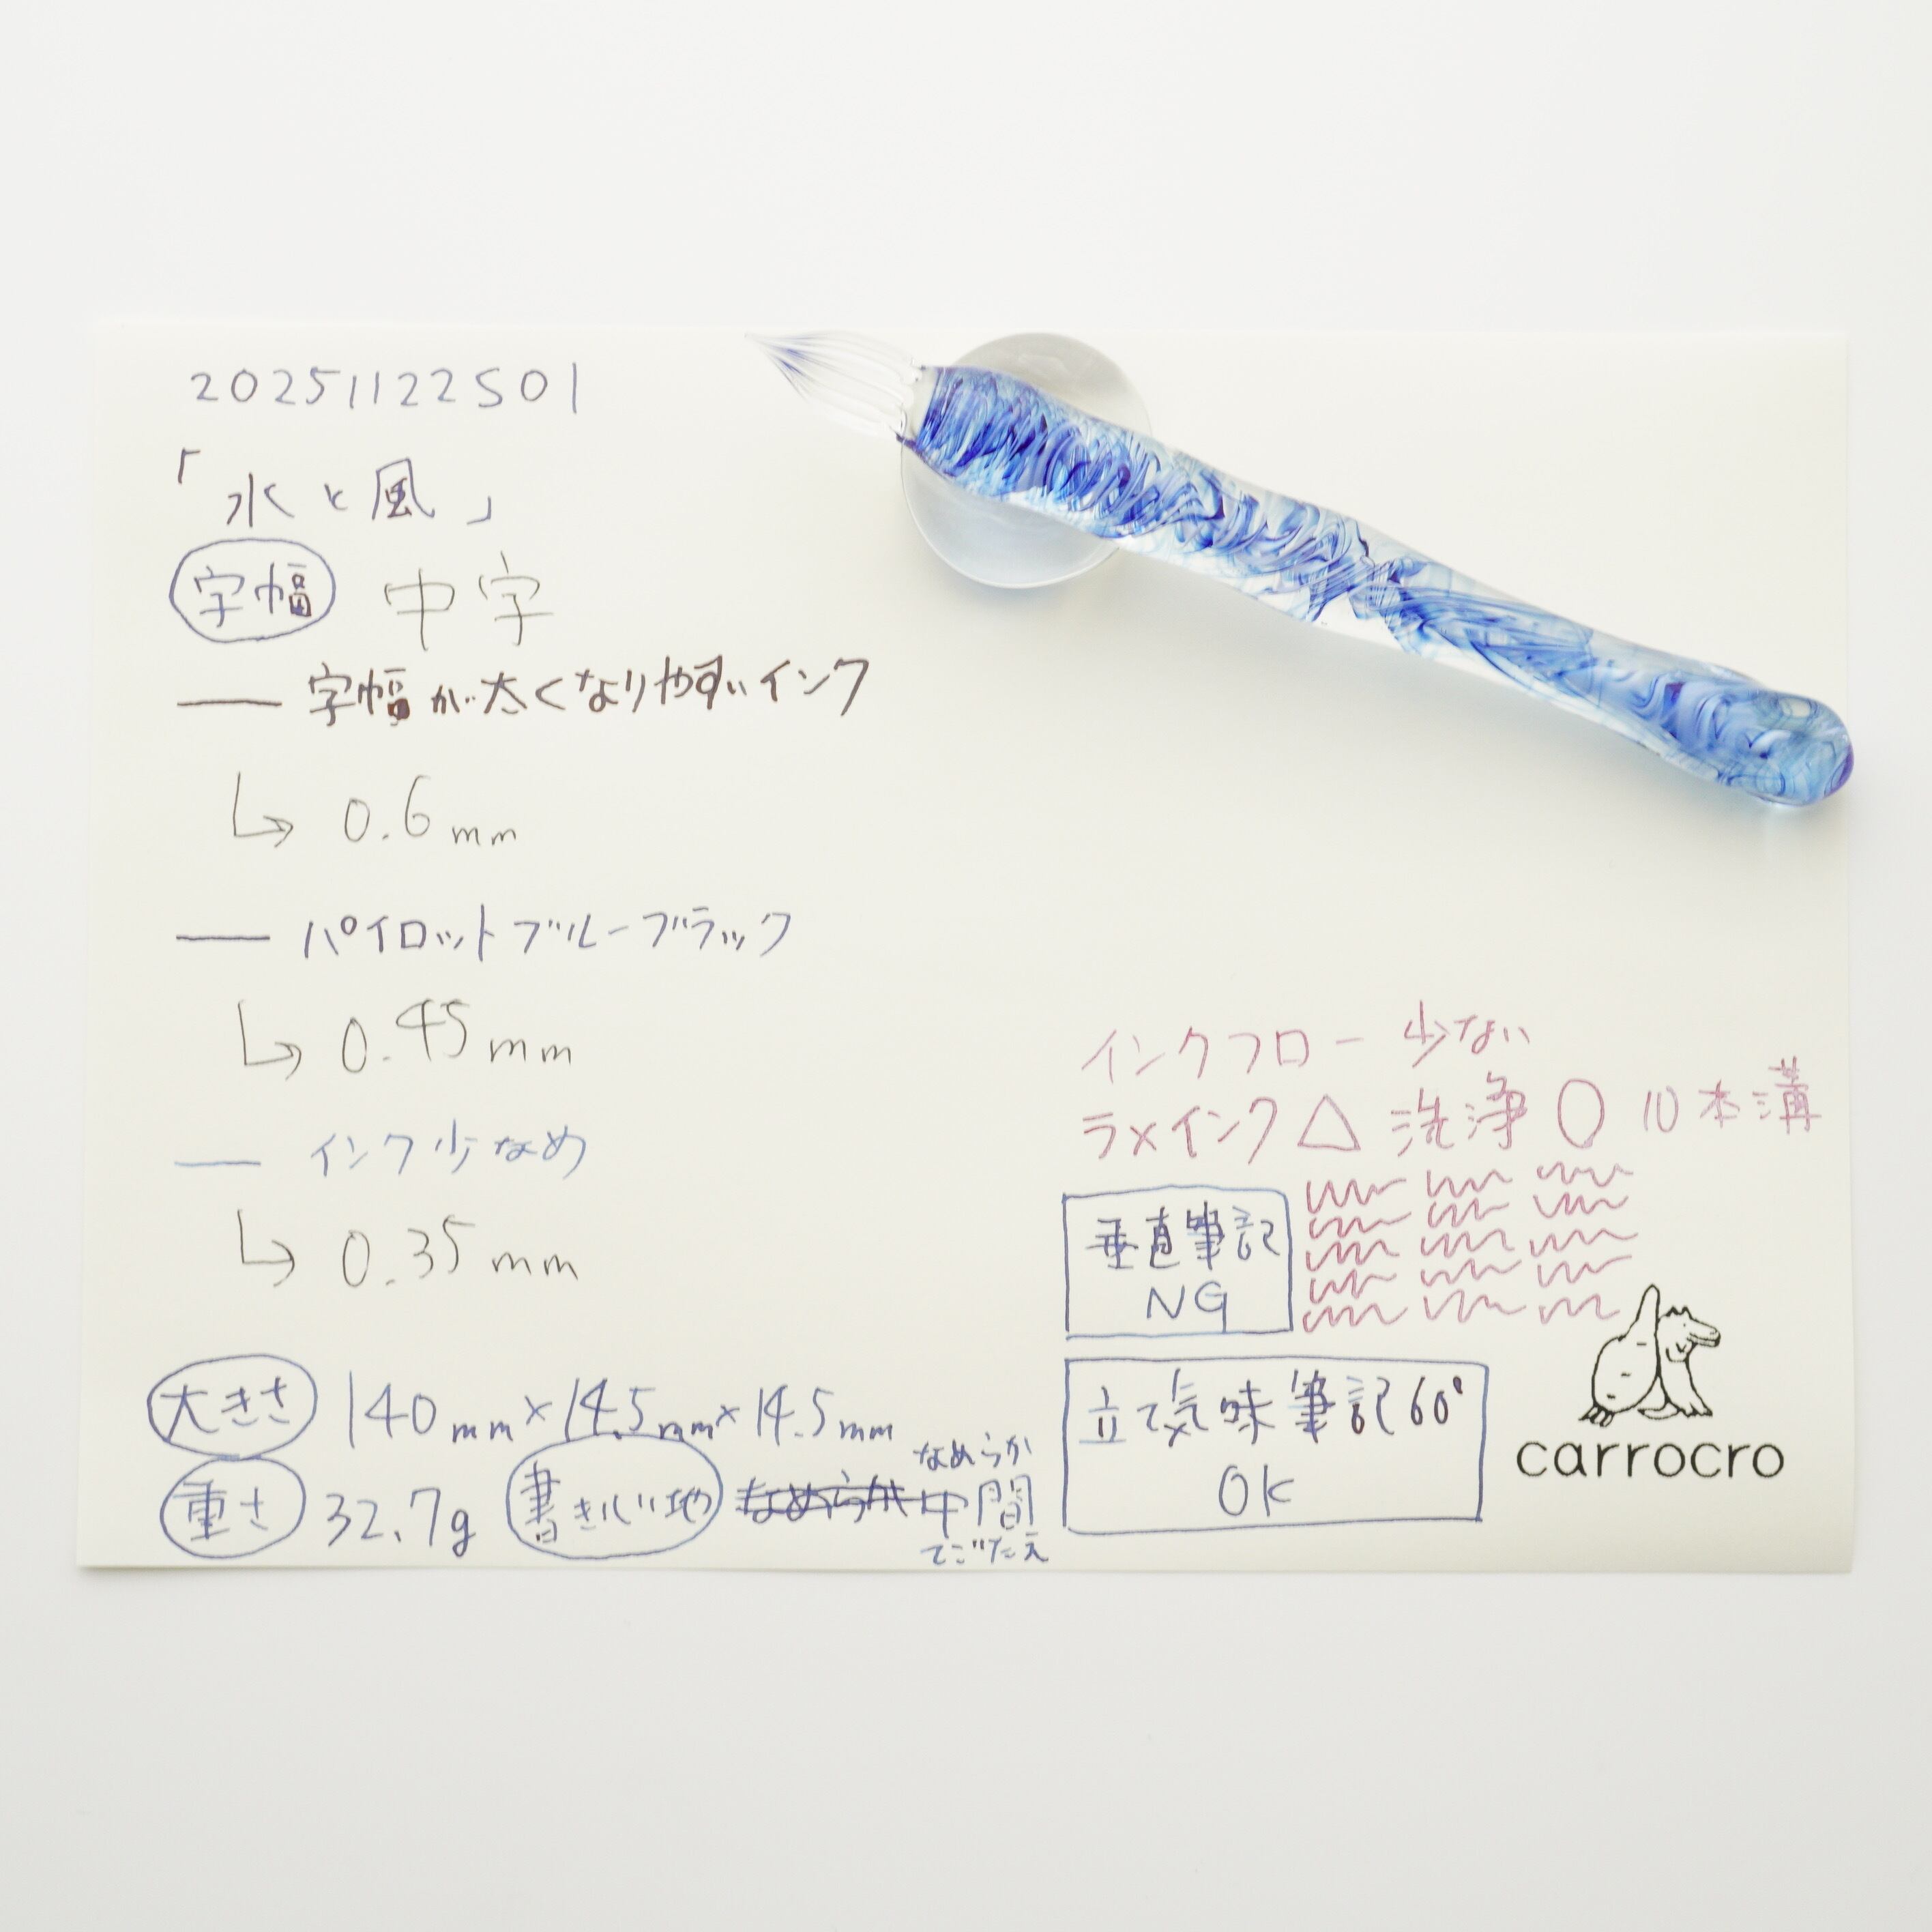 20251122S01
「水と風」
字幅 中字
字幅が太くなりやすいインク
0.6mm
パイロットブルーブラック
0.45mm
インク少なめ
0.35mm
インクフロー 少ない
ラメインク△ 洗浄○ 10本溝
垂直筆記
NG
立て気味筆記60°
OK
carrocro
大きさ 140mm×14.5mm×14.5mm
重さ 32.7g 書き心地 なめらか 中間
なめらか
てごたえ